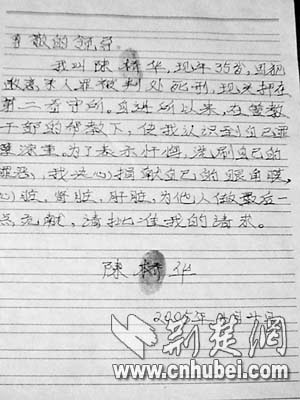 尊敬的领导:
我叫陈树华,现年35岁,因犯
故意杀人罪被判处死刑,现关押在
第二看守所。自进所以来,在管教
干部的帮教下,使我认识到自己罪
孽深重。为了表示忏悔,洗刷自己的
罪恶,我决心捐献自己的眼角膜,
心脏,肾脏,肝脏,为他人做最后一
点贡献,请批准我的请求。
陳树华
2005年
荆楚網
www.cnhubei.com